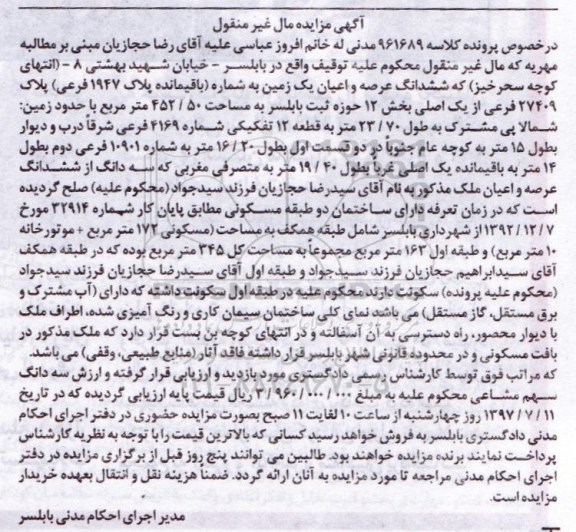 آگهی مزایده مال غیر منقول
درخصوص پرونده کلاسه ۹۶۱۶۸۹ مدنی له خانم افروز عباسی علیه آقای رضا حجازیان مبنی بر مطالبه
مهریه که مال غیر منقول محکوم علیه توقیف واقع در بابلسر - خیابان شهید بهشتی ۸ - (انتهای
کوچه سحرخیز) که ششدانگ عرصه و اعیان یک زمین به شماره (باقیمانده پلاک ۱۹۴۷ فرعی) پلاک
۲۷۴۰۹ فرعی از یک اصلی بخش ۱۲ حوزه ثبت بابلسر به مساحت ۵۰ / ۴۵۲ متر مربع با حدود زمین:
شمالا پی مشترک به طول ۷۰ / ۲۳ متر به قطعه ۱۲ تفکیکی شماره ۴۱۶۹ فرعی شرقاً درب و دیوار
بطول ۱۵ متر به کوچه عام جنوباً در دو قسمت اول بطول ۲۰ / ۱۶ متر به شماره ۱۰۹۰۱ فرعی دوم بطول
۱۴ متر به باقیمانده یک اصلی غرباً بطول ۴۰ / ۱۹ متر به متصرفی مغربی که سه دانگ از ششدانگ
عرصه و اعیان ملک مذکور به نام آقای سیدرضا حجازیان فرزند سیدجواد (محکوم علیه) صلح گردیده
است که در زمان تعرفه دارای ساختمان دو طبقه مسکونی مطابق پایان کار شماره ۳۲۹۱۴ مورخ
۷ / ۱۲ / ۱۳۹۲ از شهرداری بابلسر شامل طبقه همکف به مساحت (مسکونی ۱۷۲ متر مربع + موتورخانه
۱۰ متر مربع) و طبقه اول ۱۶۳ متر مربع مجموعاً به مساحت کل ۳۴۵ متر مربع بوده که در طبقه همکف
آقای سیدابراهیم حجازیان فرزند سیدجواد و طبقه اول آقای سیدرضا حجازیان فرزند سیدجواد
(محکوم علیه پرونده) سکونت دارند محکوم علیه در طبقه اول سکونت داشته که دارای (آب مشترک و
برق مستقل، گاز مستقل) می باشد نمای کلی ساختمان سیمان کاری و رنگ آمیزی شده، اطراف ملک
با دیوار محصور، راه دسترسی به آن آسفالته و در انتهای کوچه بن بست قرار دارد که ملک مذکور در
بافت مسکونی و در محدوده قانونی شهر بابلسر قرار داشته فاقد آثار (منابع طبیعی، وقفی) می باشد.
که مراتب فوق توسط کارشناس رسمی دادگستری مورد بازدید و ارزیابی قرار گرفته و ارزش سه دانگ
سهم مشاعی محکوم علیه به مبلغ ۰۰۰ / ۰۰۰ / ۹۶۰ / ۳ ریال قیمت پایه ارزیابی گردیده که در تاریخ
۱۱ / ۷ / ۱۳۹۷ روز چهارشنبه از ساعت ۱۰ لغایت ۱۱ صبح بصورت مزایده حضوری در دفتر اجرای احکام
مدنی دادگستری بابلسر به فروش خواهد رسید کسانی که بالاترین قیمت را با توجه به نظریه کارشناس
پرداخت نمایند برنده مزایده خواهند بود. طالبین می توانند پنج روز قبل از برگزاری مزایده در دفتر
اجرای احکام مدنی مراجعه تا مورد مزایده به آنان ارائه گردد. ضمناً هزینه نقل و انتقال بعهده خریدار
مزایده است.
مدیر اجرای احکام مدنی بابلسر